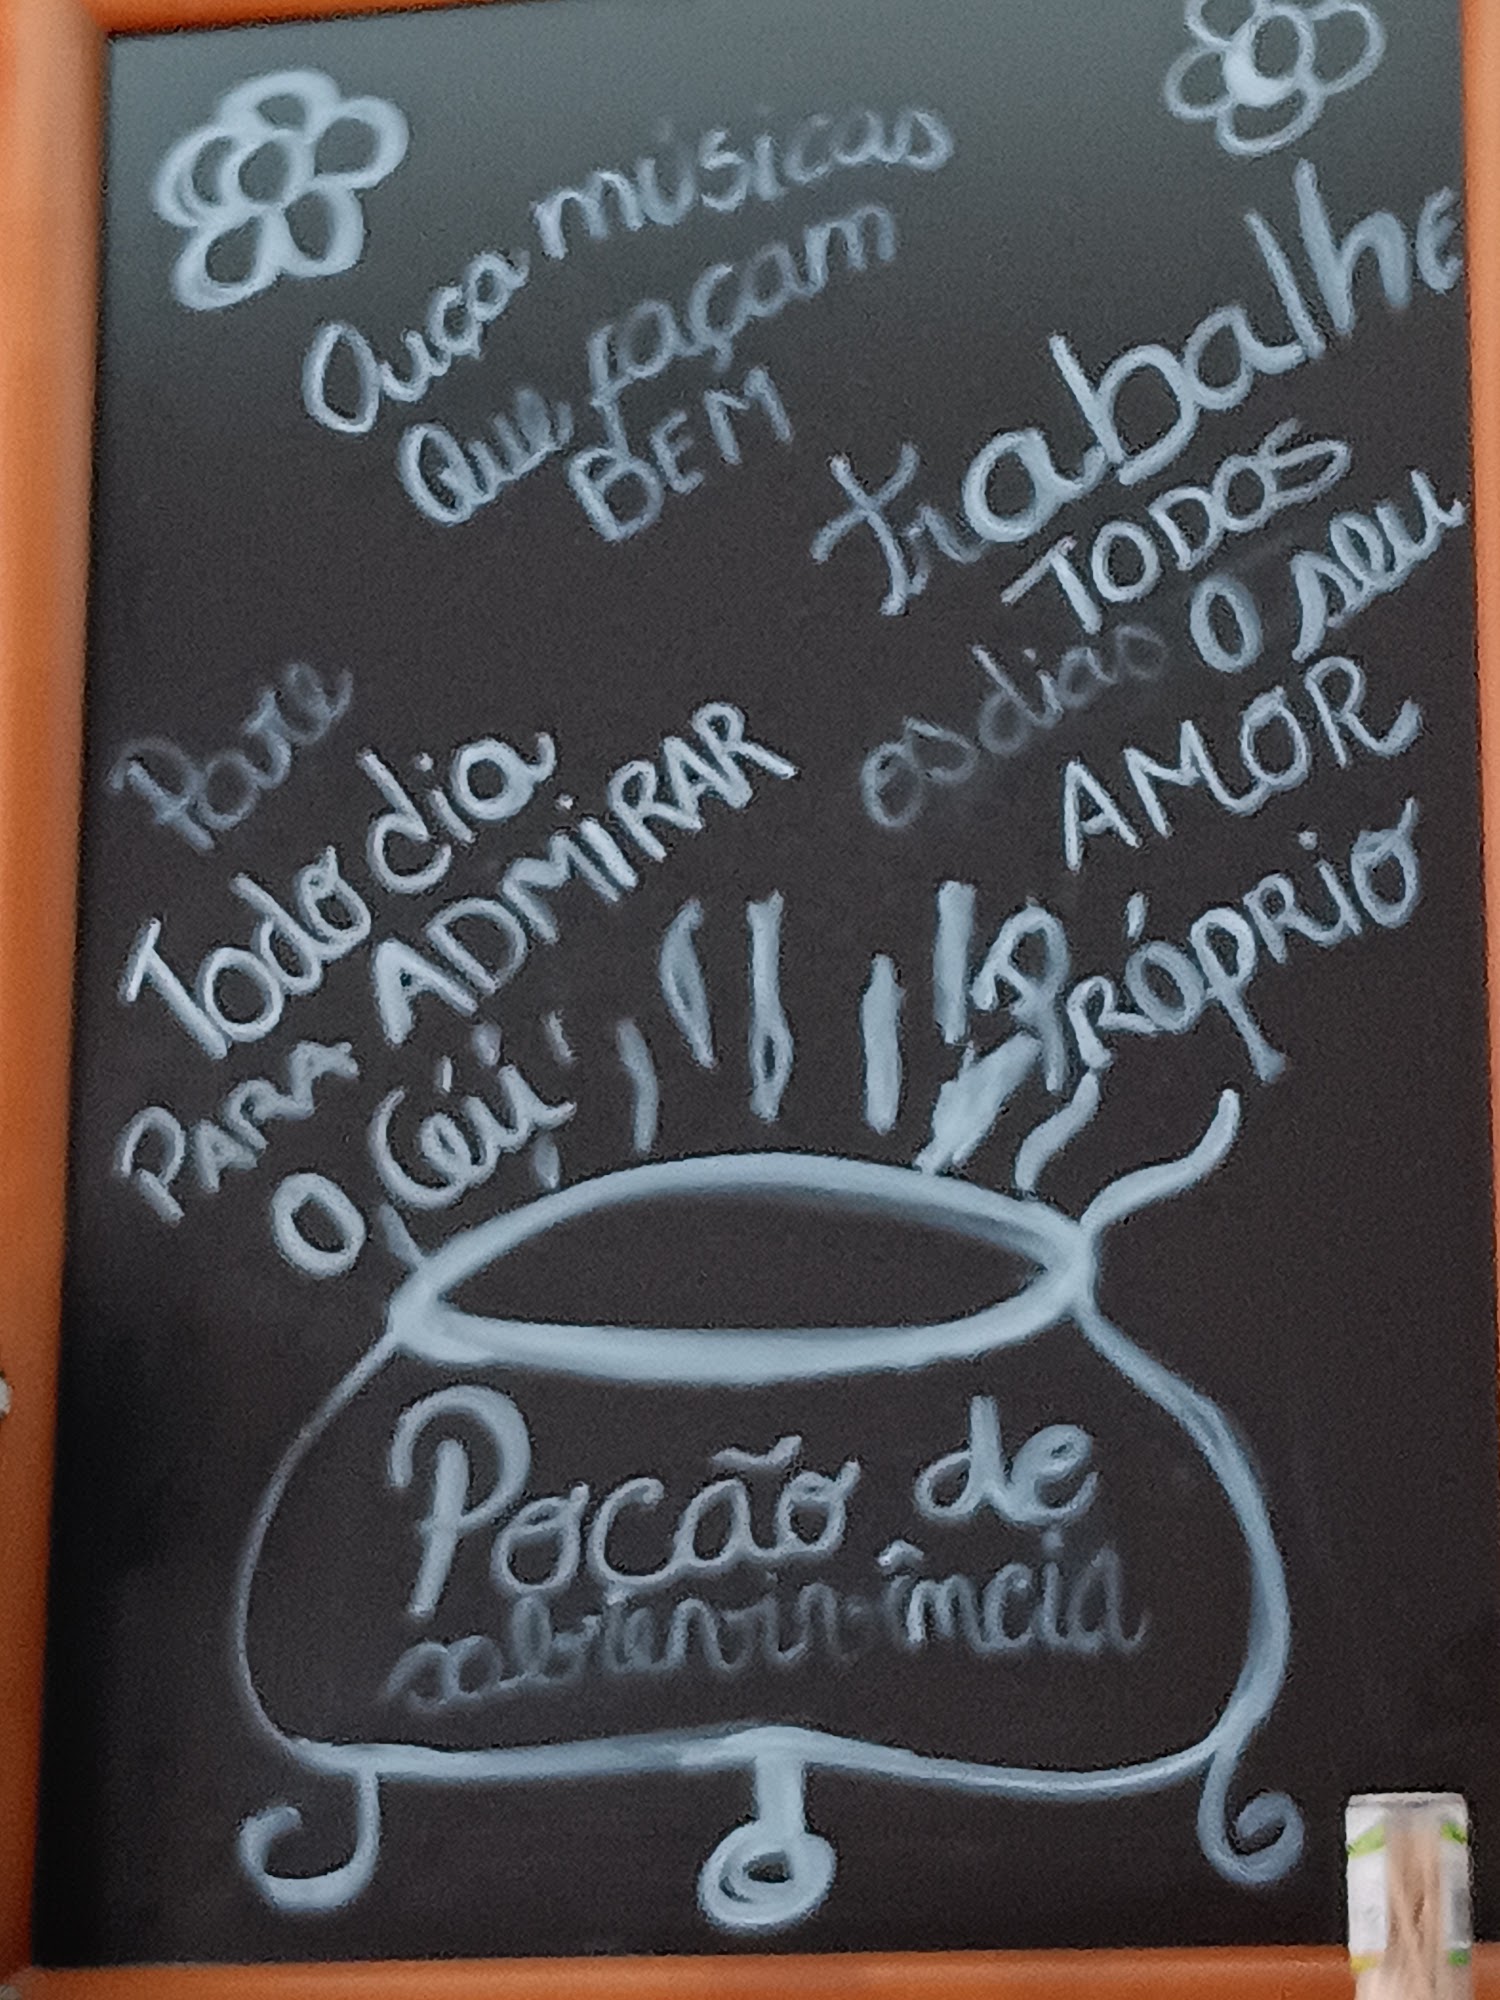 Ouça músicas
que façam
BEM
trabalhe
TODOS
os dias o seu
AMOR
PRÓPRIO
Pare
Todo dia
PARA ADMIRAR
o Céu
Poção de
sobrevivência